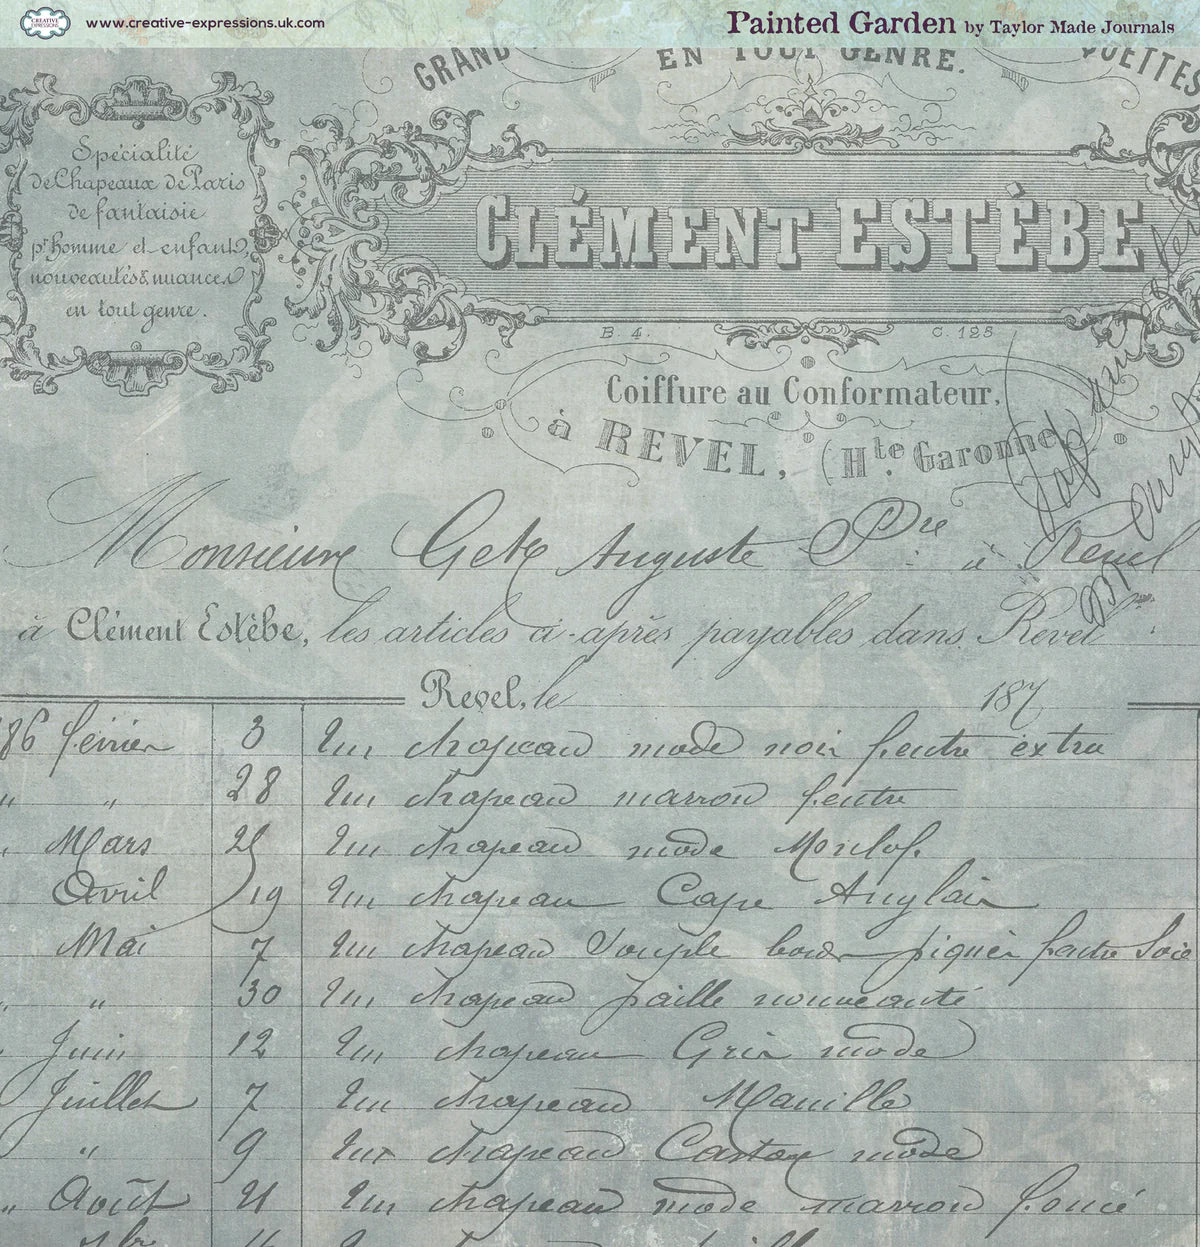 CREATIVE EXPRESSIONS
www.creative-expressions.uk.com
Painted Garden by Taylor Made Journals
GRAND
EN TOUT GENRE.
Spécialité
de Chapeaux de Paris
de fantaisie
pr homme et enfants,
nouveautés & nuances
en tout genre.
CLÉMENT ESTÈBE
B. 4. C. 128
Coiffure au Conformateur,
à REVEL, (Hte Garonne)
Monsieur Auguste à Revel
à Clément Estèbe, les articles ci-après payables dans Revel
Revel, le 187
86 février 3 Un chapeau mode noir feutre extra
" " 28 Un chapeau marron feutre
" Mars 25 Un chapeau mode
Avril 19 Un chapeau Cape Anglais
Mai 7 Un chapeau Souple bord piqué feutre Soie
" " 30 Un chapeau paille nouveauté
Juin 12 Un chapeau Gris mode
Juillet 7 Un chapeau Manille
" 9 Un chapeau Castor mode
" Août 21 Un chapeau mode marron foncé